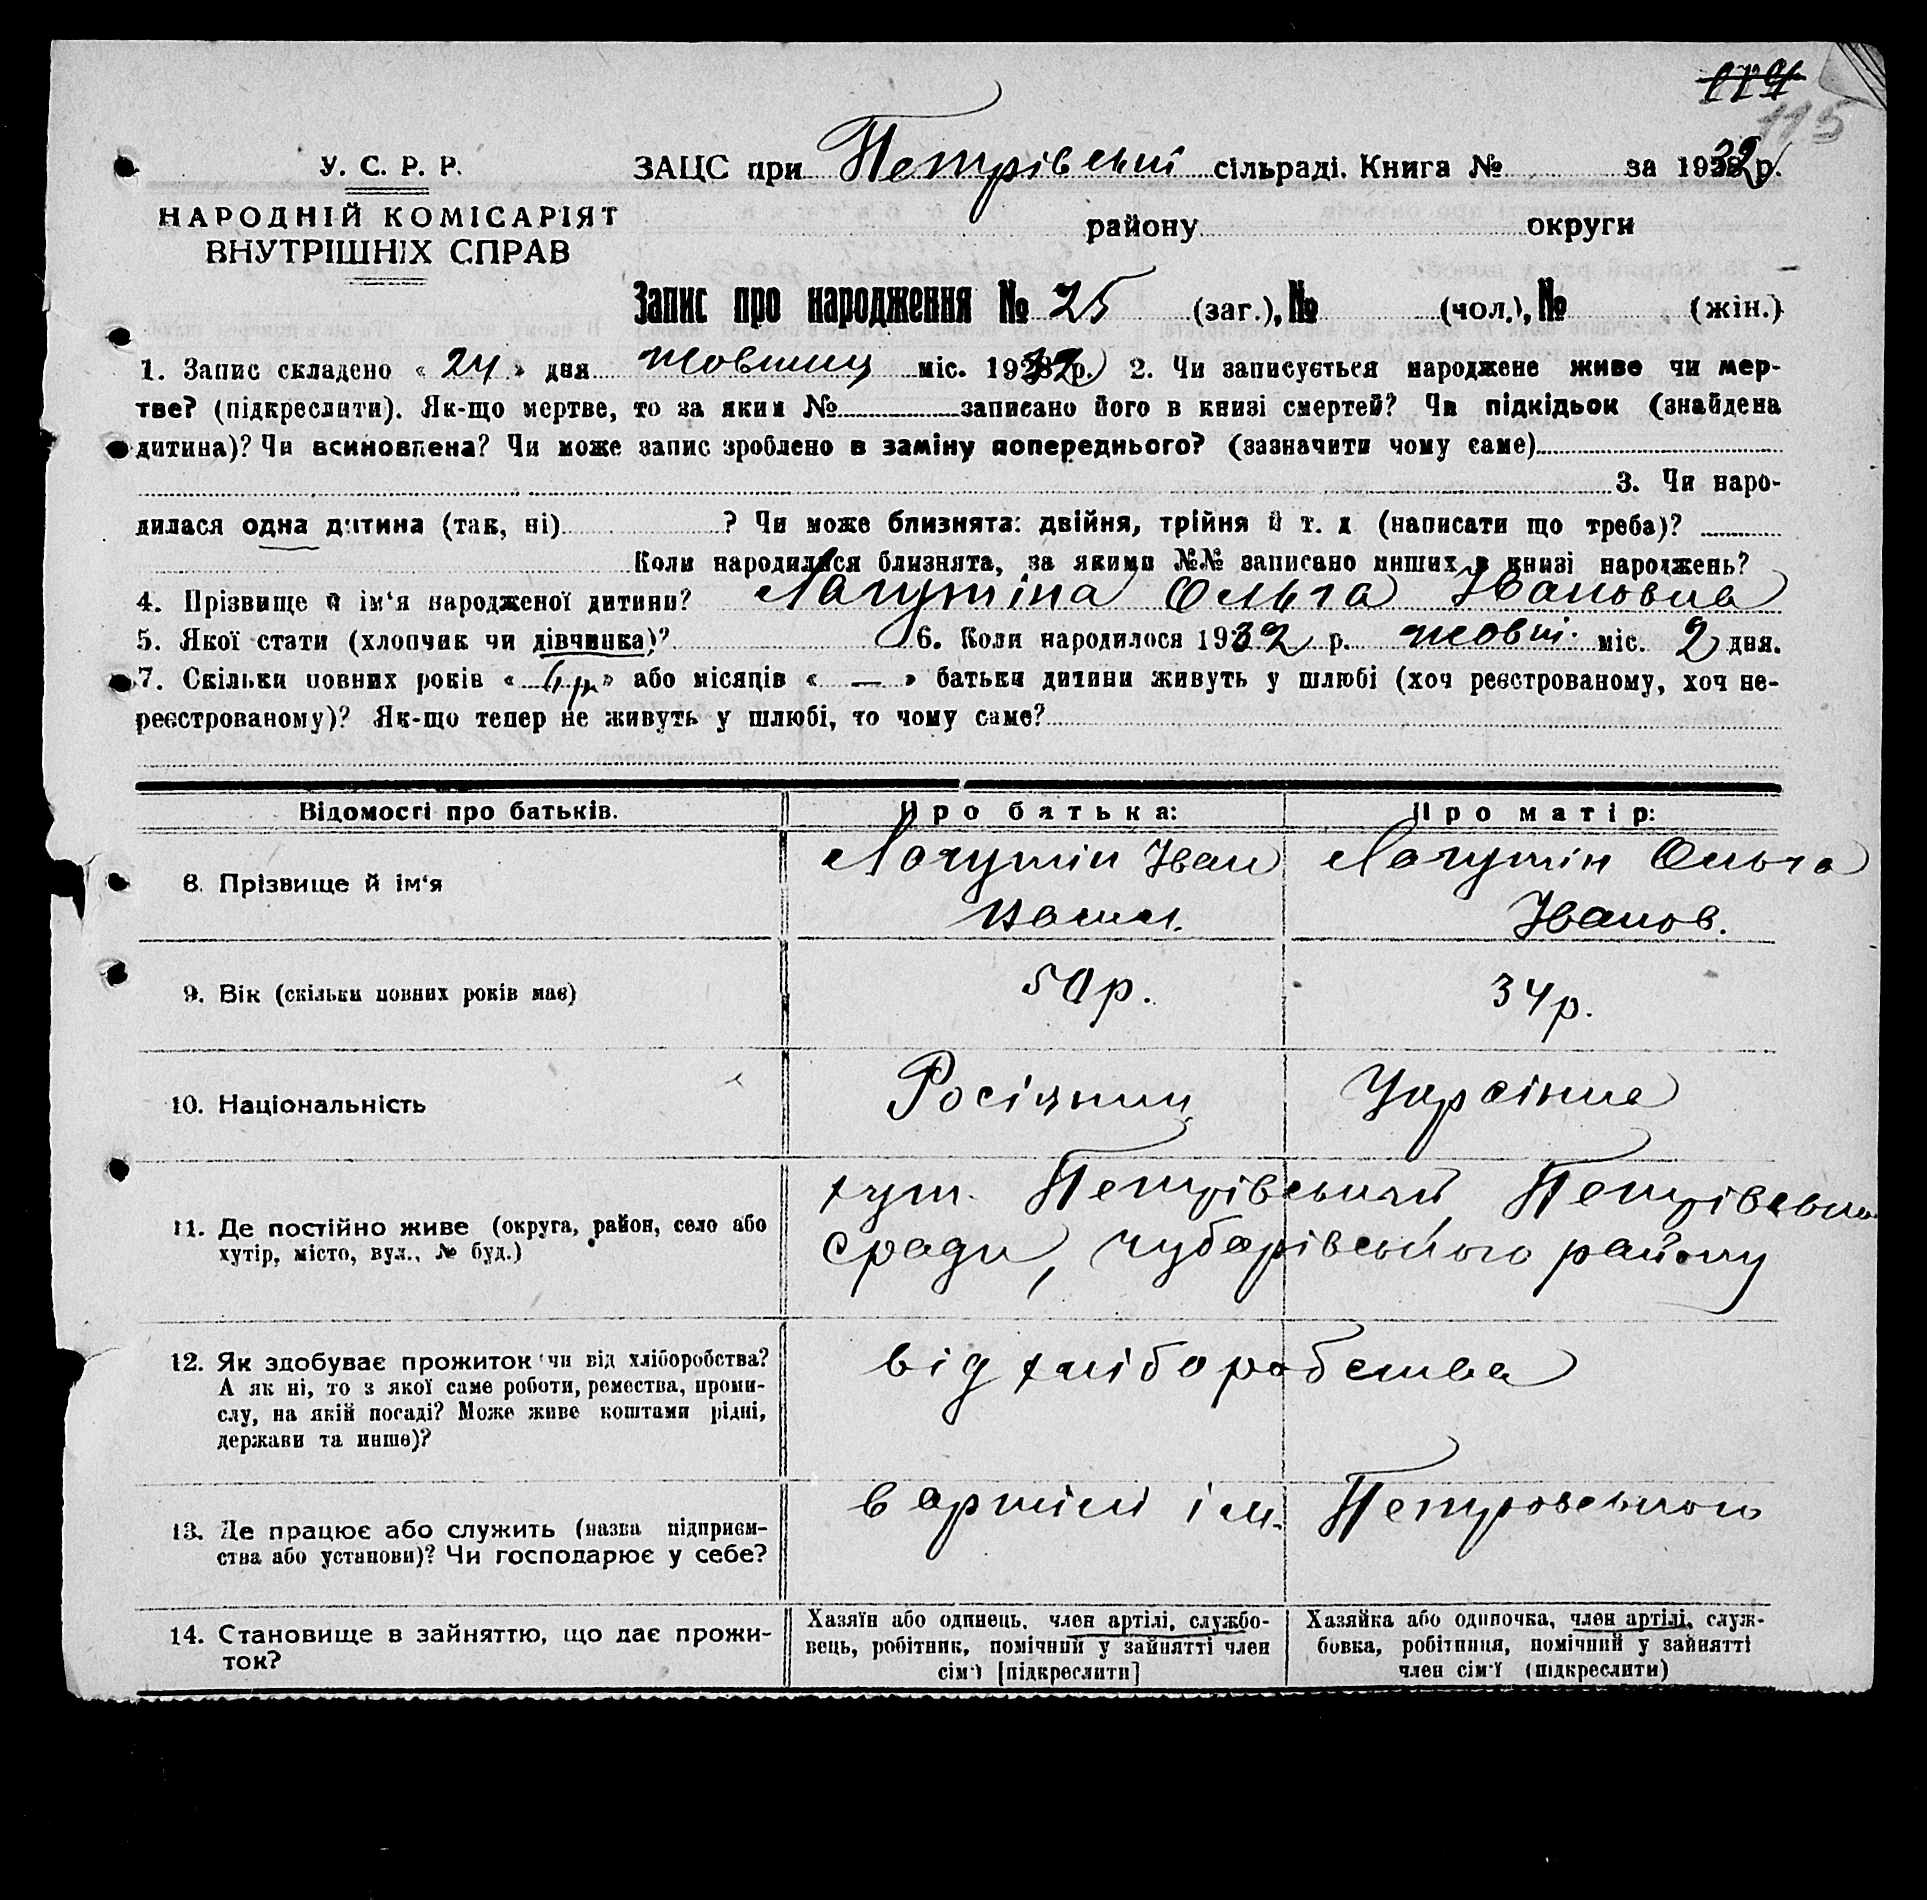 119
115
У. С. Р. Р.
НАРОДНІЙ КОМІСАРІЯТ
ВНУТРІШНІХ СПРАВ
ЗАЦС при Петрівській сільраді. Книга № за 1932 р.
району округи
Запис про народження № 25 (заг.), № (чол.), № (жін.)
1. Запис складено « 24 » дня жовтня міс. 1932 р. 2. Чи записується народжене живе чи мер-
тве? (підкреслити). Як-що мертве, то за яким № записано його в книзі смертей? Чи підкідьок (знайдена
дитина)? Чи всиновлена? Чи може запис зроблено в заміну попереднього? (зазначити чому саме)
3. Чи наро-
дилася одна дитина (так, ні) ? Чи може близнята: двійня, трійня й т. д (написати що треба)?
Коли народилися близнята, за якими №№ записано инших в книзі народжень?
4. Прізвище й ім'я народженої дитини? Лагутіна Ольга Івановна
5. Якої стати (хлопчик чи дівчинка)? 6. Коли народилося 1932 р. жовт. міс. 2 дня.
7. Скільки повних років « 4 р » або місяців « — » батьки дитини живуть у шлюбі (хоч реєстрованому, хоч не-
реєстрованому)? Як-що тепер не живуть у шлюбі, то чому саме?
Відомості про батьків. Про батька: Про матір:
8. Прізвище й ім'я Лагутін Іван Васил. Лагутін Ольга Іванов.
9. Вік (скільки повних років має) 50 р. 34 р.
10. Національність Росіянин Українка
11. Де постійно живе (округа, район, село або
хутір, місто, вул., № буд.)
хут. Петрівський Петрівсько
сради, чубарівського району
12. Як здобуває прожиток чи від хліборобства?
А як ні, то з якої саме роботи, ремества, проми-
слу, на якій посаді? Може живе коштами рідні,
держави та инше)?
від хліборобства
13. Де працює або служить (назва підприєм-
ства або установи)? Чи господарює у себе?
в артілі ім. Петровського
14. Становище в зайняттю, що дає прожи-
ток?
Хазяїн або одинець, член артілі, службо-
вець, робітник, помічний у зайнятті член
сім'ї [підкреслити]
Хазяйка або одиночка, член артілі, служ-
бовка, робітниця, помічний у зайнятті
член сім'ї (підкреслити)